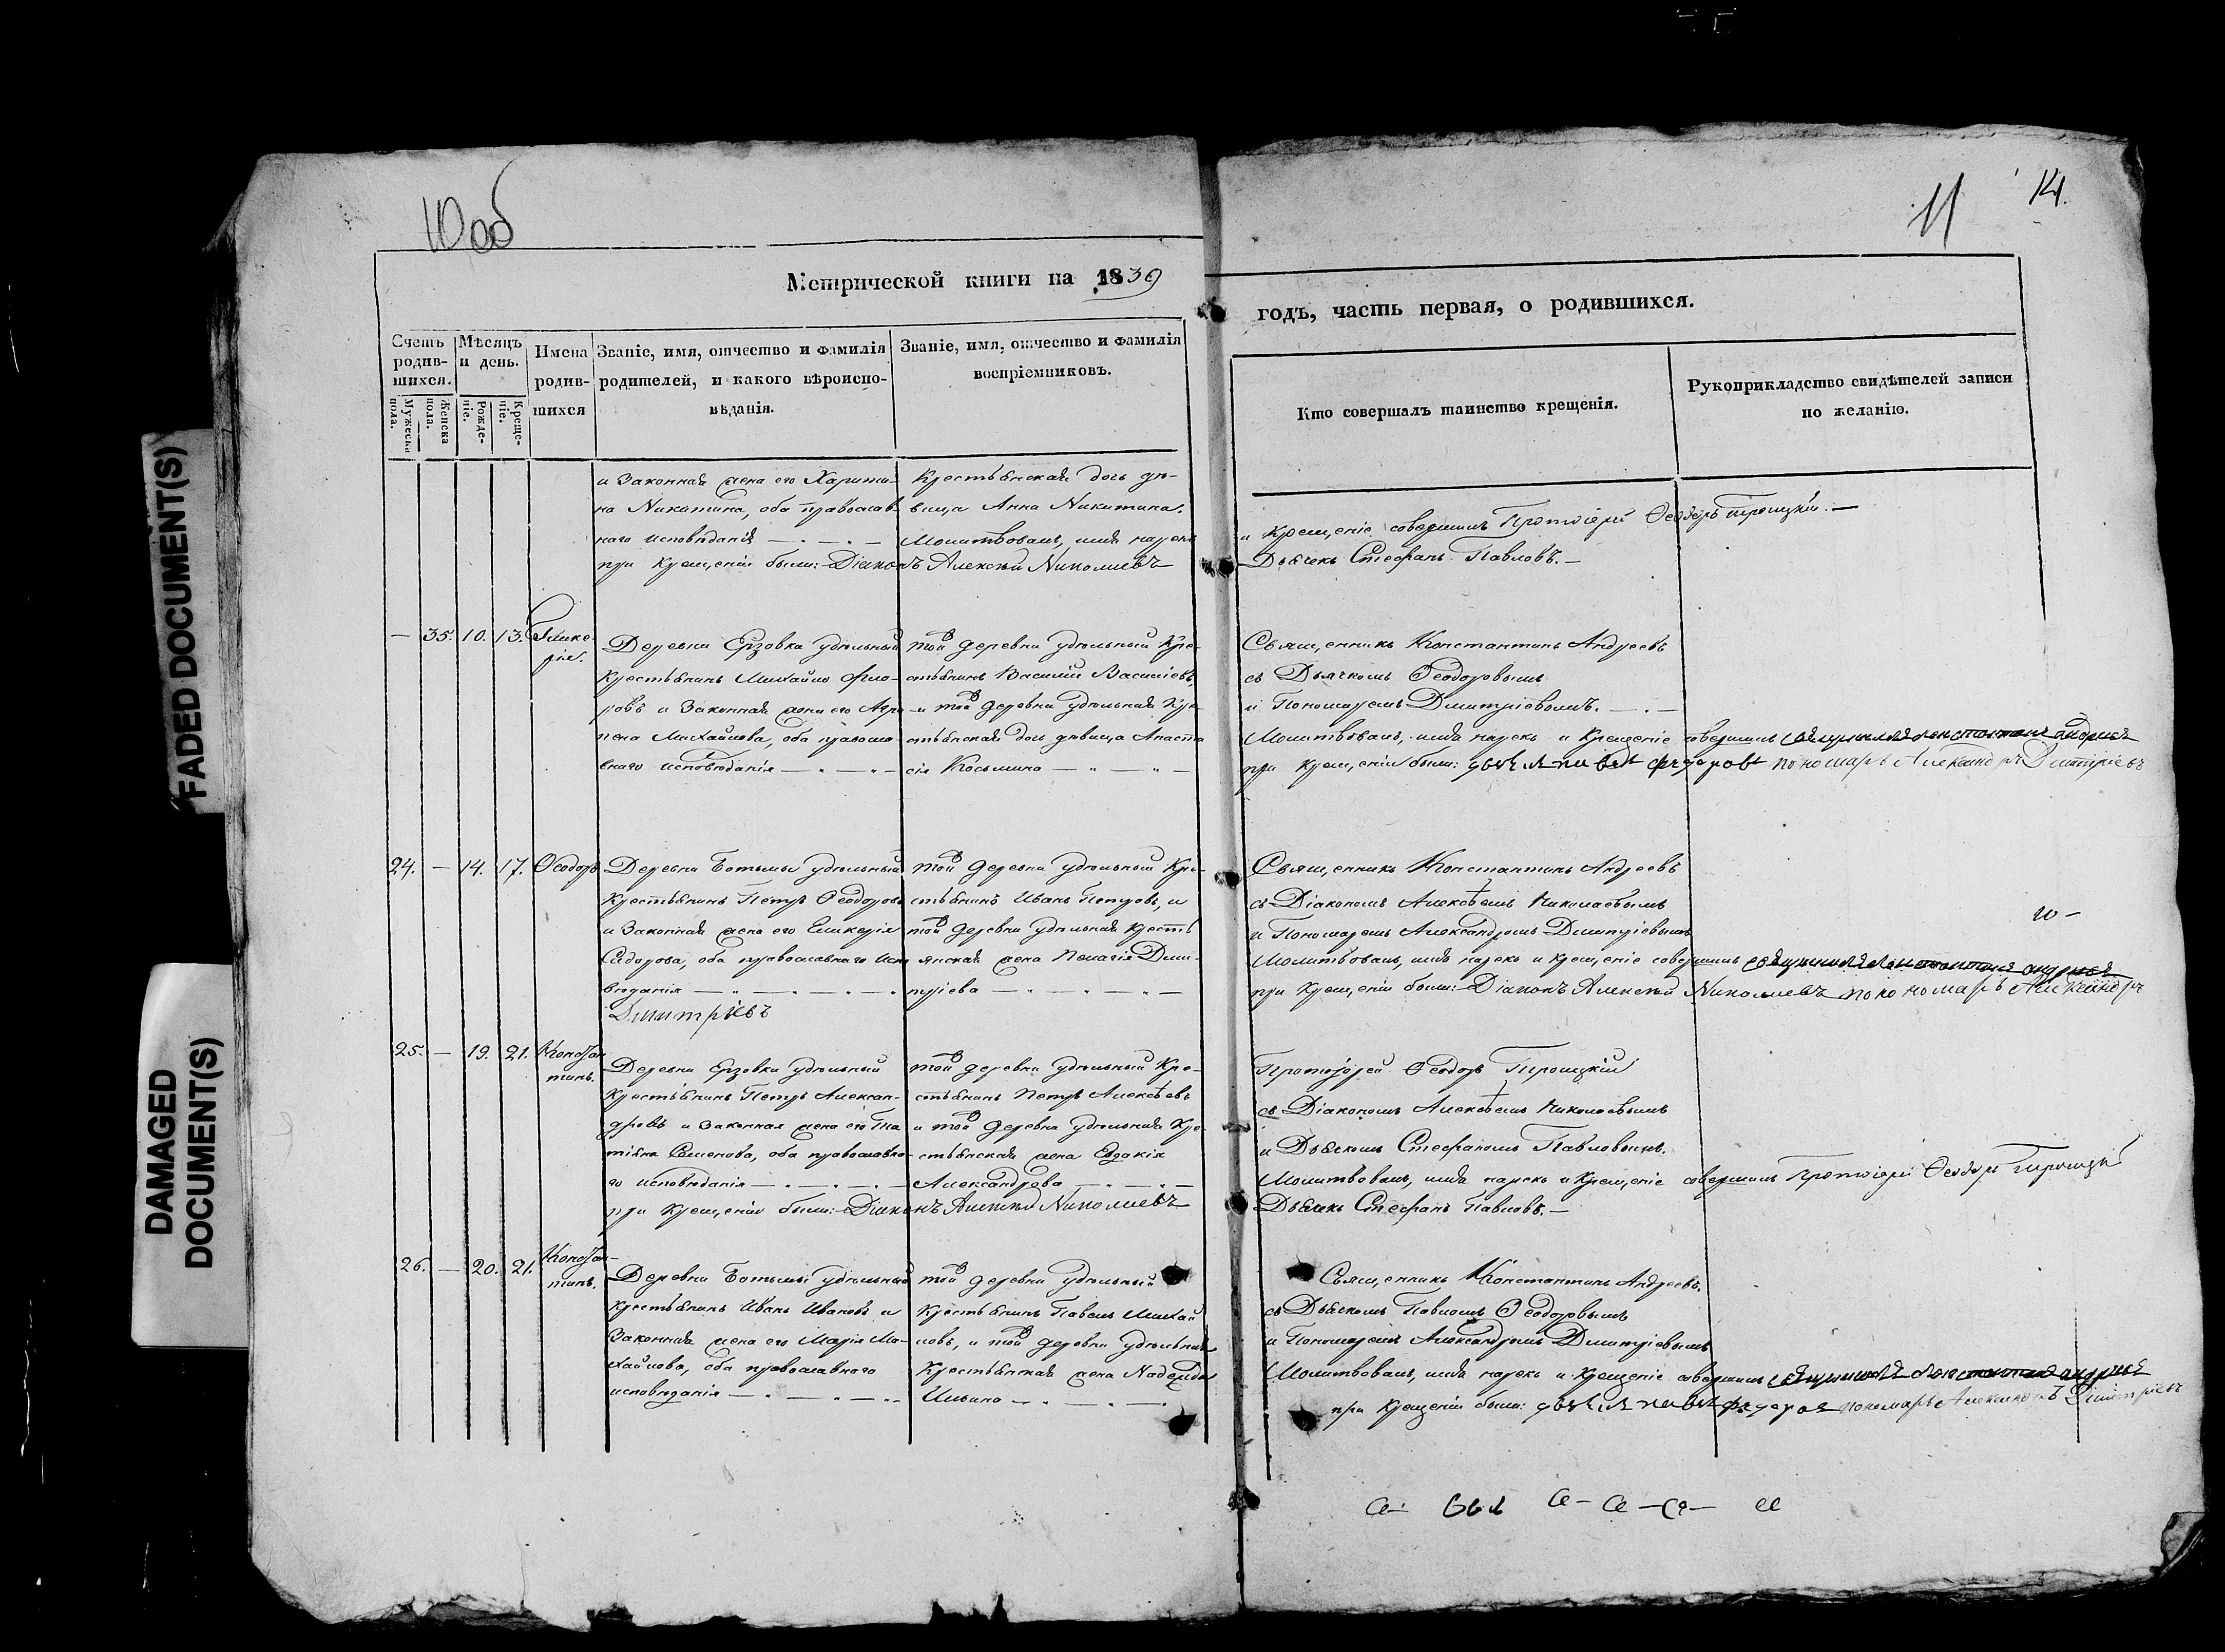 FADED DOCUMENT(S)
DAMAGED
DOCUMENT(S)
10 об
11
14.
Метрической книги на 1839
годъ, часть первая, о родившихся.
Счетъ родив-шихся.
Мужеска пола.
Женска пола.
Мѣсяцъ и день.
Рожде-ніе.
Креще-ніе.
Имена родив-шихся
Званіе, имя, отчество и фамилія
родителей, и какого вѣроиспо-
вѣданія.
Званіе, имя, отчество и фамилія
воспріемниковъ.
Кто совершалъ таинство крещенія.
Рукоприкладство свидѣтелей записи
по желанію.
и Законная жена его Харити-
на Никитина, оба православ-
наго исповѣданія
Крестьянская дочь дѣ-
вица Анна Никитина.
Молитвовалъ, имя нарекъ
и Крещеніе совершилъ Протоіерей Ѳеодоръ Троицкій. —
при Крещеніи были: Діаконъ Алексѣй Николаевъ
Дьячекъ Стефанъ Павловъ. —
— 35. 10. 13. Глике-
рія.
Деревни Ерзовки удѣльный
Крестьянинъ Михайло Фло-
ровъ и Законная жена его Агри-
пена Михайлова, оба правосла-
внаго исповѣданія
той деревни удѣльный Кре-
стьянинъ Василій Васильевъ,
и той деревни удѣльная Кре-
стьянская дочь дѣвица Анаста
сія Косьмина
Священникъ Константинъ Андреевъ
съ Дьячкомъ Ѳеодоровымъ
и Пономаремъ Димитріевымъ.
Молитвовалъ, имя нарекъ и Крещеніе совершилъ священникъ Константинъ Андреевъ
при Крещеніи были: дьячекъ Павелъ Федоровъ пономарь Александръ Димитріевъ
24. — 14. 17. Ѳеодоръ
Деревни Ботьмы удѣльный
Крестьянинъ Петръ Ѳеодоровъ
и Законная жена его Гликерія
Сидорова, оба православнаго испо
вѣданія
той деревни удѣльный Кре-
стьянинъ Иванъ Петровъ, и
той деревни удѣльная Кресть
янская жена Пелагія Дми-
тріева
Священникъ Константинъ Андреевъ
съ Діакономъ Алексѣемъ Николаевымъ
и Пономаремъ Александромъ Димитріевымъ
Молитвовалъ, имя нарекъ и Крещеніе совершилъ священникъ Константинъ Андреевъ
при Крещеніи были: Діаконъ Алексѣй Николаевъ пономарь Александръ
Димитріевъ
25. — 19. 21. Констан
тинъ.
Деревни Ерзовки удѣльный
Крестьянинъ Петръ Алексан-
дровъ и Законная жена его Та
тіяна Семенова, оба православна-
го исповѣданія
той деревни удѣльный Кре-
стьянинъ Петръ Алексѣевъ
и той деревни удѣльная Кре-
стьянская жена Евдокія
Александрова
Протоіерей Ѳеодоръ Троицкій
съ Діакономъ Алексѣемъ Николаевымъ
и Дьячкомъ Стефаномъ Павловымъ.
Молитвовалъ, имя нарекъ и Крещеніе совершилъ Протоіерей Ѳеодоръ Троицкій
при Крещеніи были: Діаконъ Алексѣй Николаевъ
Дьячекъ Стефанъ Павловъ. —
26. — 20. 21. Констан-
тинъ.
Деревни Ботьмы удѣльный
Крестьянинъ Иванъ Ивановъ и
Законная жена его Марія Ми-
хайлова, оба православнаго
исповѣданія
той деревни удѣльный
Крестьянинъ Павелъ Михай
ловъ, и той деревни удѣльная
Крестьянская жена Надежда
Ильина
Священникъ Константинъ Андреевъ.
съ Дьячкомъ Павломъ Ѳеодоровымъ
и Пономаремъ Александромъ Димитріевымъ
Молитвовалъ, имя нарекъ и Крещеніе совершилъ священникъ Константинъ Андреевъ
при Крещеніи были: дьячекъ Павелъ Федоровъ пономарь Александръ Димитріевъ